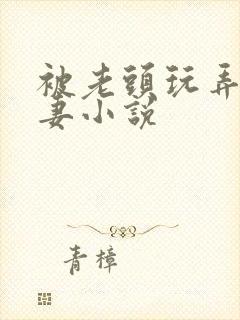 被老頭玩弄
妻小說
青樟